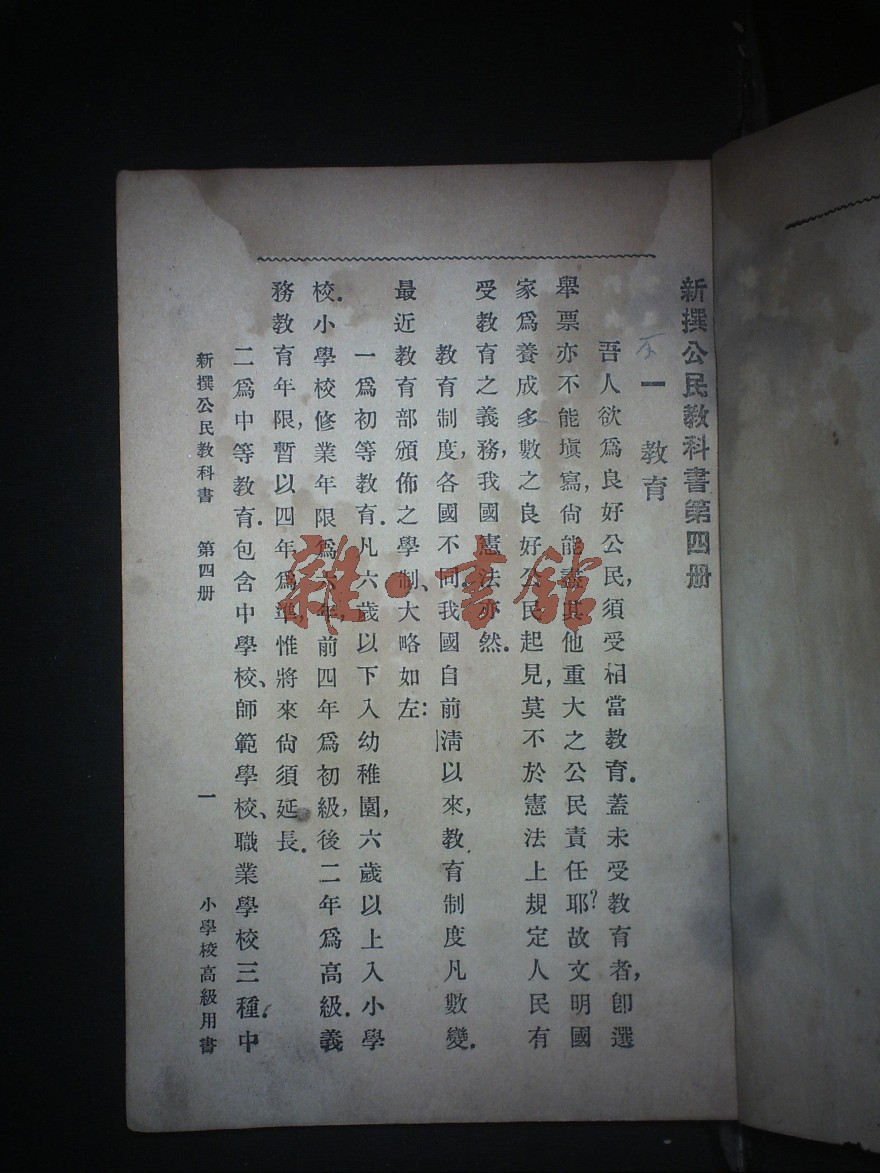 新撰公民教科書第四册
一　教育
吾人欲爲良好公民，須受相當教育。蓋未受教育者，卽選
舉票亦不能塡寫，尙能盡其他重大之公民責任耶？故文明國
家爲養成多數之良好公民起見，莫不於憲法上規定人民有
受教育之義務，我國憲法亦然。
教育制度，各國不同。我國自前淸以來，教育制度凡數變。
最近教育部頒佈之學制、大略如左：
一爲初等教育。凡六歲以下入幼稚園，六歲以上入小學
校。小學校修業年限爲六年，前四年爲初級，後二年爲高級。義
務教育年限，暫以四年爲準，惟將來尙須延長。
二爲中等教育。包含中學校、師範學校、職業學校三種。中
新撰公民教科書　第四册　一　小學校高級用書
雜·書館